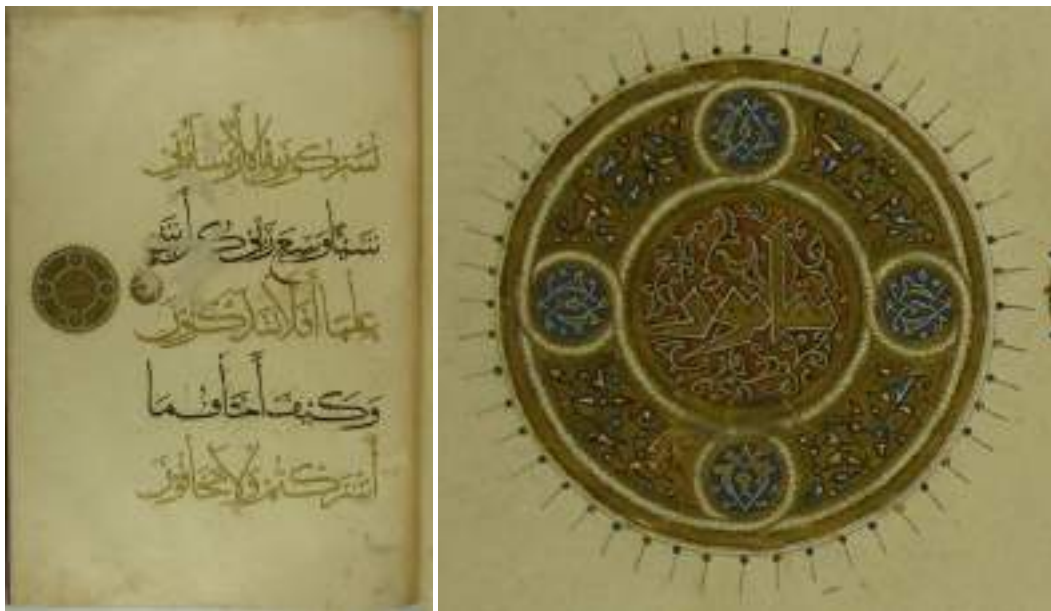 تشركون به إلا أن يشاء ربي
شيئا وسع ربي كل شيء
علما أفلا تتذكرون
وكيف أخاف ما
أشركتم ولا تخافون